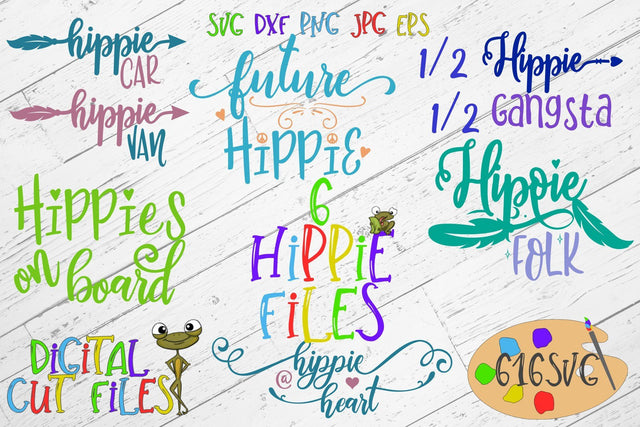 SVG DXF PNG JPG EPS
hippie
CAR
hippie
VAN
future
HiPPiE
1/2 Hippie
1/2 Gangsta
Hippie
FOLK
HiPPiES
on board
6
HiPPiE
FiLES
DiGiTAL
CUT FiLES
@ hippie
heart
616SVG